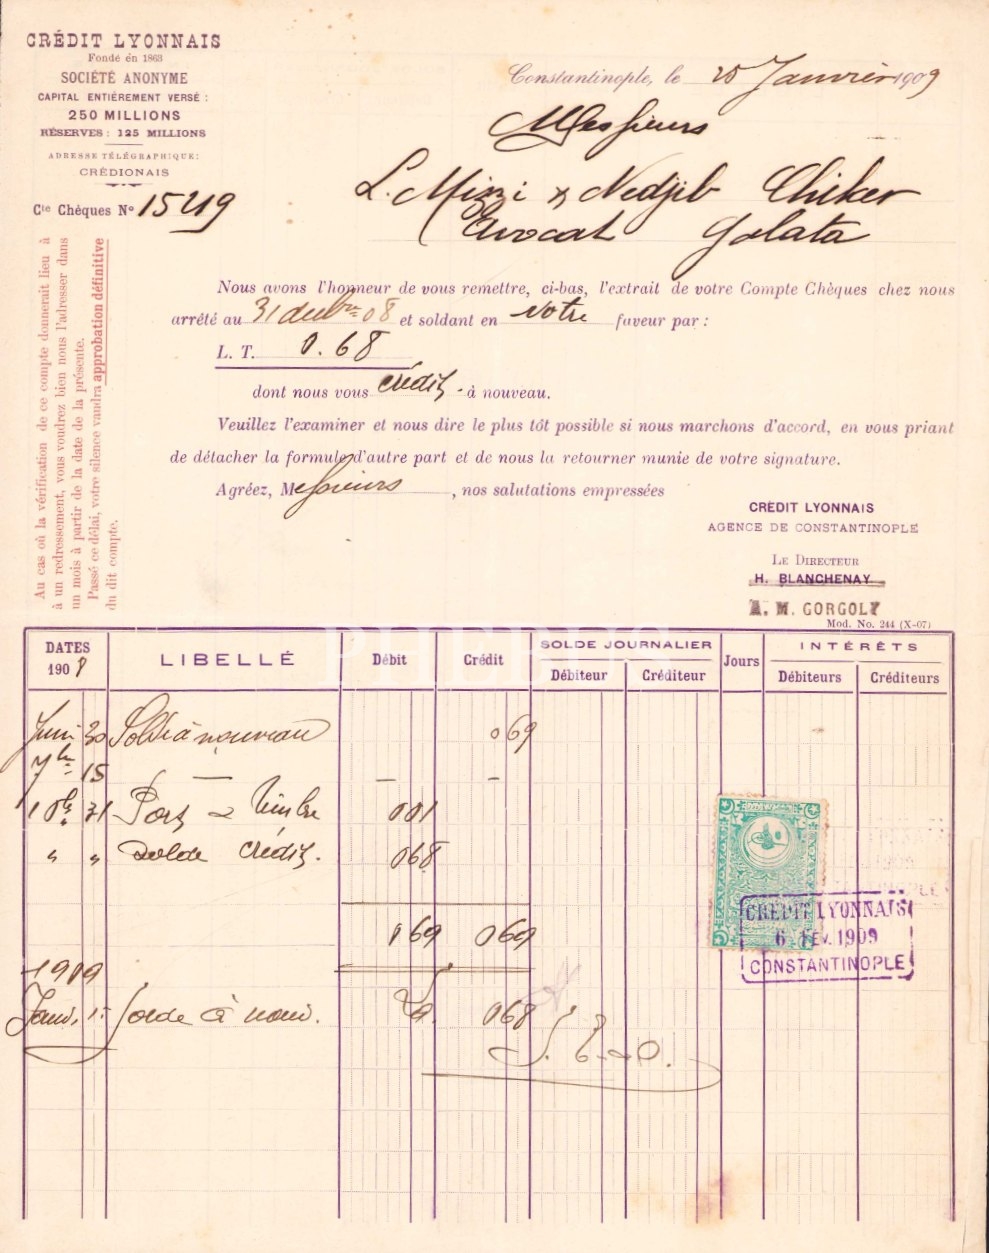 CRÉDIT LYONNAIS
Fondé en 1863
SOCIÉTÉ ANONYME
CAPITAL ENTIÈREMENT VERSÉ :
250 MILLIONS
RÉSERVES : 125 MILLIONS
ADRESSE TÉLÉGRAPHIQUE:
CRÉDIONAIS
Cte Chèques No 15219
Constantinople, le 25 Janvier 1909
Messieurs
L. Mizzi & Nedjib Chiker
Avocat Galata
Au cas où la vérification de ce compte donnerait lieu à
à un redressement, vous voudrez bien nous l'adresser dans
un mois à partir de la date de la présente.
Passé ce délai, votre silence vaudra approbation définitive
du dit compte.
Nous avons l'honneur de vous remettre, ci-bas, l'extrait de votre Compte Chèques chez nous
arrêté au 31 decbre 08 et soldant en votre faveur par :
L. T. 0.68
dont nous vous crédit. à nouveau.
Veuillez l'examiner et nous dire le plus tôt possible si nous marchons d'accord, en vous priant
de détacher la formule d'autre part et de nous la retourner munie de votre signature.
Agréez, Messieurs, nos salutations empressées
CRÉDIT LYONNAIS
AGENCE DE CONSTANTINOPLE
LE DIRECTEUR
H. BLANCHENAY
A. M. GORGOLY
Mod. No. 244 (X-07)
DATES 1908 LIBELLÉ Débit Crédit SOLDE JOURNALIER Débiteur Créditeur Jours INTÉRÊTS Débiteurs Créditeurs
Juin 30 Solde à nouveau 069
7bre 15 — — —
10bre 31 Port & Timbre 001
" " Solde Crédit. 068
069 069
1909
Janv. 1 Solde à nouv. 068
S. E. & O.
CRÉDIT LYONNAIS
6 FEV. 1909
CONSTANTINOPLE
PHEBUS